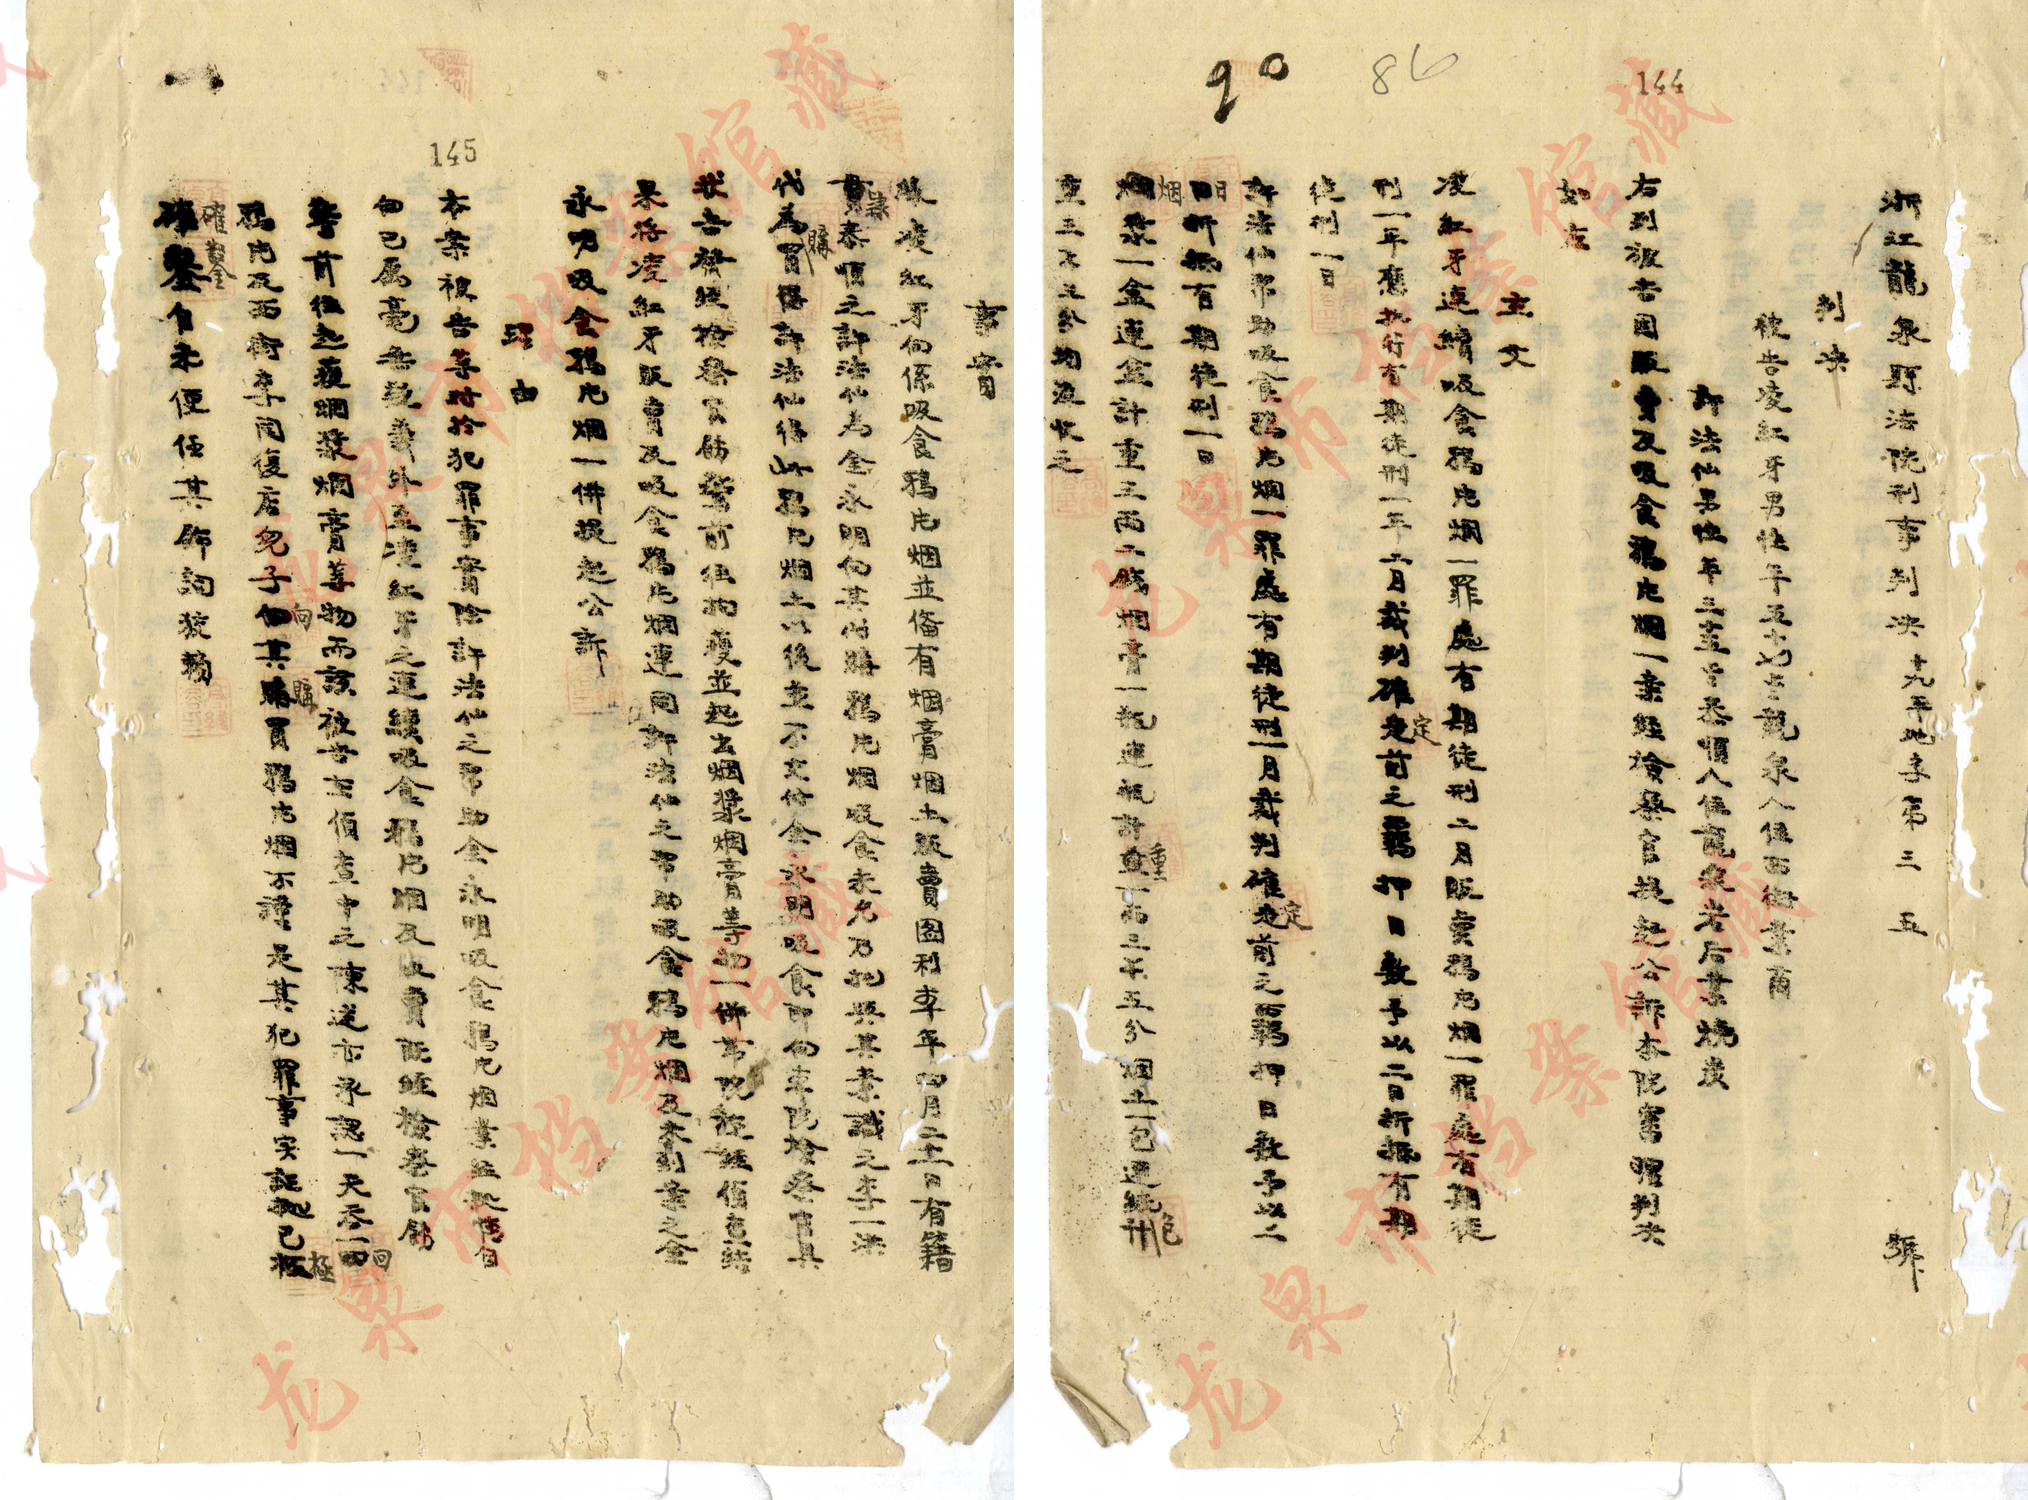 144
86
90
浙江龍泉縣法院刑事判決十九年地字第三五號
判決
被告凌紅牙男住年五十七古龍泉人住西街業商
許法仙男住年三十五才泰順人住龍泉岩后業燒炭
右列被告因販賣及吸食鴉片烟一案經檢察官提起公訴本院審理判決
如左
主文
凌紅牙連續吸食鴉片烟一罪處有期徒刑二月販賣鴉片烟一罪處有期徒
刑一年應執行有期徒刑一年二月裁判確定前之羈押日數予以二日折抵有期
徒刑一日
許法仙帮助吸食鴉片烟一罪處有期徒刑一月裁判確定前之羈押日數予以二
日折抵有期徒刑一日
烟漿一盒連盒計重三兩二錢烟膏一瓶連瓶計重 兩二錢五分烟土一包連紙包
重三錢五分均沒收之
145
事實
緣凌紅牙向係吸食鴉片烟並備有烟膏烟土販賣圖利本年四月二十一日有籍
隸泰順之許法仙為金永明向其代購鴉片烟吸食未允乃挽與其素識之李一洪
代為購得許法仙得此鴉片烟土以後立即交付金永明吸食即向本院檢察官具
狀告發經檢察官飭警前往搜獲並起出烟漿烟膏等物一併帶院訊經偵查結
果將凌紅牙販賣及吸食鴉片烟連同許法仙之帮助吸食鴉片烟及未到案之金
永明吸食鴉片烟一併提起公訴
理由
本案被告等對於犯罪事實除許法仙之帮助金永明吸食鴉片烟業經提供自
白已屬毫無疑義外至凌紅牙之連續吸食鴉片烟及販賣既經檢察官飭
警前往起獲烟漿烟膏等物而該被告在偵查中之陳述亦承認一天吞一回
鴉片及西街李同復店兒子向其購買鴉片烟不諱是其犯罪事實証據已極
確鑿自未便任其飾詞狡賴